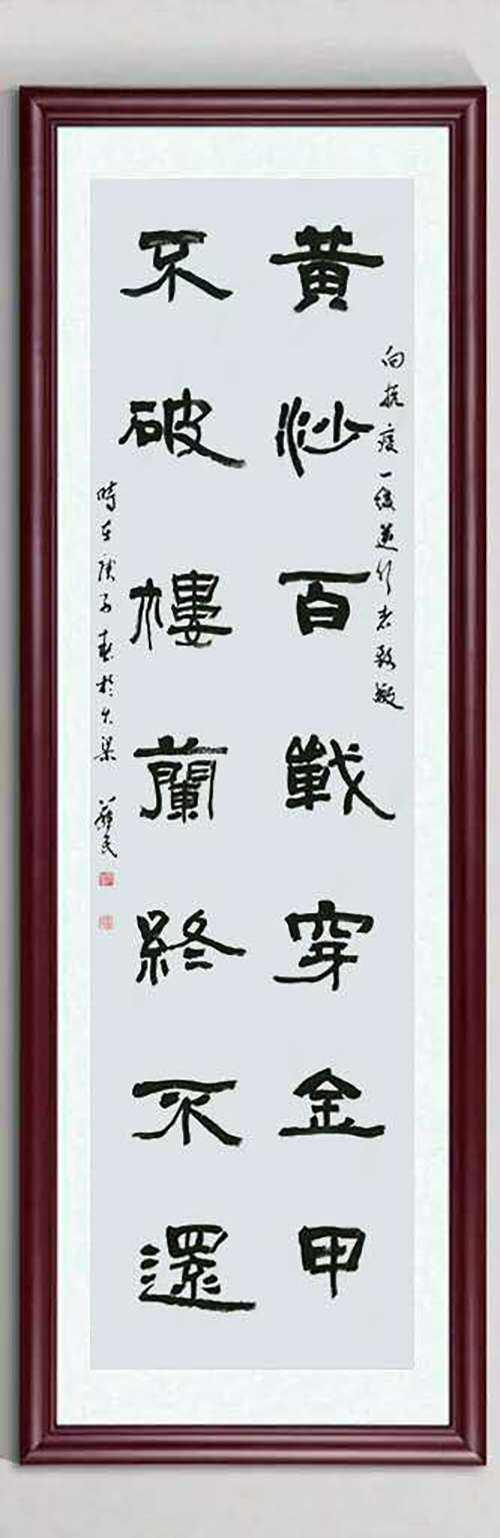 向抗疫一线逆行者致敬
黄沙百戰穿金甲
不破樓蘭終不還
時在庚子春於大梁